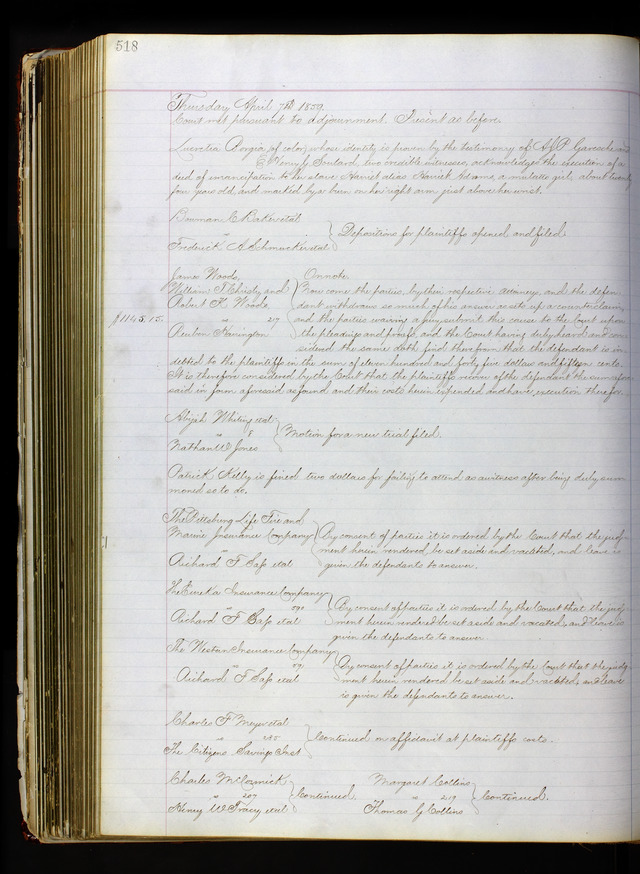 518
Thursday April 7th 1859.
Court met pursuant to adjournment. Present as before.
Lucretia Borgia, (of color) whose identity is proven by the testimony of A P Garesche and
Soulard, two credible witnesses, acknowledges the execution of a
deed of emancipation to her slave Harriet alias Harriet Adams, a mulatto girl, about twenty
four years old, and marked by a burn on her right arm just above her wrist.
Bowman C Baker et al
"
Frederick A Schmucker et al
Depositions for plaintiffs opened and filed
James Woods,
William T Christy and
Robert K Woods
" 217
Reuben Harington
$1145.15.
On note.
Now come the parties, by their respective attorneys, and the defen
dant withdraws so much of his answer as sets up a counterclaim,
and the parties waiving a jury submit this cause to the Court upon
the pleadings and proofs, and the Court having duly heard and con
sidered the same doth find therefrom that the defendant is in
debted to the plaintiffs in the sum of eleven hundred and forty five dollars and fifteen cents.
It is therefore considered by the Court that the plaintiffs recover of the defendant the sum afore
said in form aforesaid as found, and their costs herein expended and have execution therefor.
Abijah Whiting et al
" 8
Nathan W Jones
Motion for a new trial filed.
Patrick Kelly is fined two dollars for failing to attend as a witness after being duly sum
moned so to do.
The Pittsburg Life Fire and
Marine Insurance Company
"
Richard F Sass et al
By consent of parties it is ordered by the Court that the judg-
ment herein rendered, be set aside and vacated, and leave is
given the defendants to answer.
The Eureka Insurance Company
"
Richard F Sass et al
By consent of parties it is ordered by the Court that the judg
ment herein rendered be set aside and vacated, and leave is
given the defendants to answer
The Western Insurance Company
"
Richard F Sass et al
By consent of parties it is ordered by the Court that the judg
ment herein rendered be set aside and vacated, and leave
is given the defendants to answer.
Charles F Meyer et al
"
The Citizens Savings Inst
Continued on affidavit at plaintiffs costs.
Charles McCormick
" 207
Henry W Tracy et al
Continued.
Margaret Collins
" 219
Thomas G Collins
Continued.